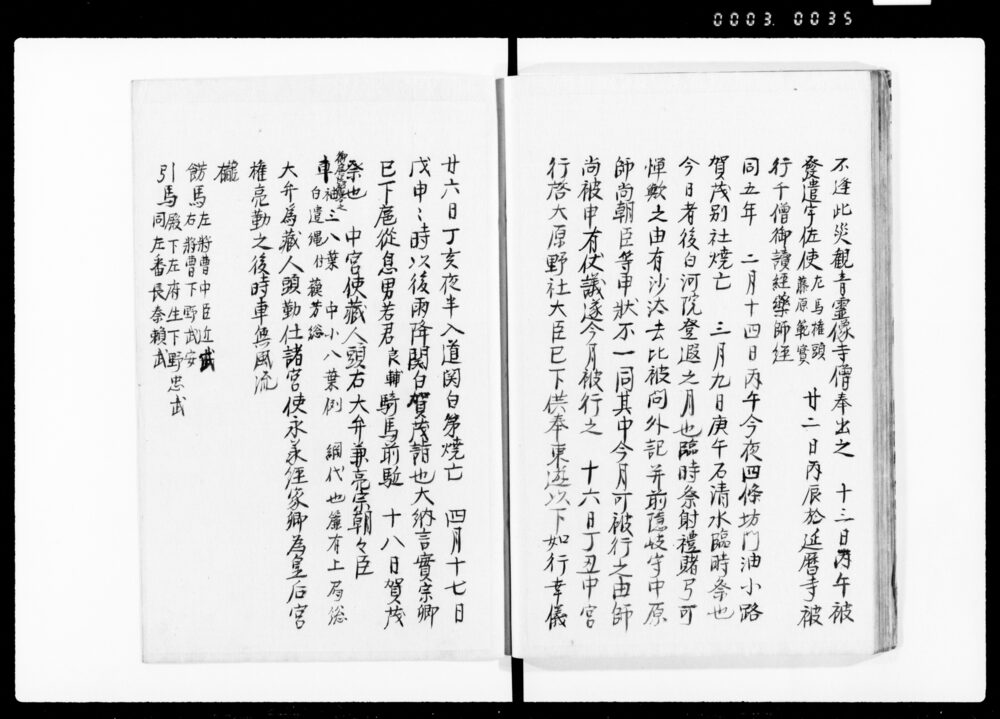 0003 0035
不逢此災観音霊像寺僧奉出之 十三日丙午被
発遣宇佐使左馬権頭藤原範實 廿二日丙辰於延暦寺被
行千僧御讀経薬師経
同五年 二月十四日丙午今夜四條坊門油小路
賀茂別社焼亡 三月九日庚午石清水臨時祭也
今日者後白河院登遐之月也臨時祭射禮賭弓可
憚歟之由有沙汰去比被問外記并前隠岐守中原
師尚朝臣等申状不一同其中今月可被行之由師
尚被申有仗議遂今月被行之 十六日丁丑中宮
行啓大原野社大臣已下供奉東遊以下如行幸儀
廿六日丁亥夜半入道関白第焼亡 四月十七日
戊申〻時以後雨降関白賀茂詣也大納言實宗卿
已下扈從息男若君良輔騎馬前駈 十八日賀茂
祭也 中宮使蔵人頭右大弁兼亮宗朝々臣
車袖三八葉 中小八葉例 網代也簾有上局絵
白遣縄付薐芳絵
大弁為蔵人頭勤仕諸宮使永承経家卿為皇后宮
権亮勤之後時車無風流
櫳
餝馬左将曹中臣近武
右将曹下野武安
引馬殿下左府生下野忠武
同左番長秦頼武